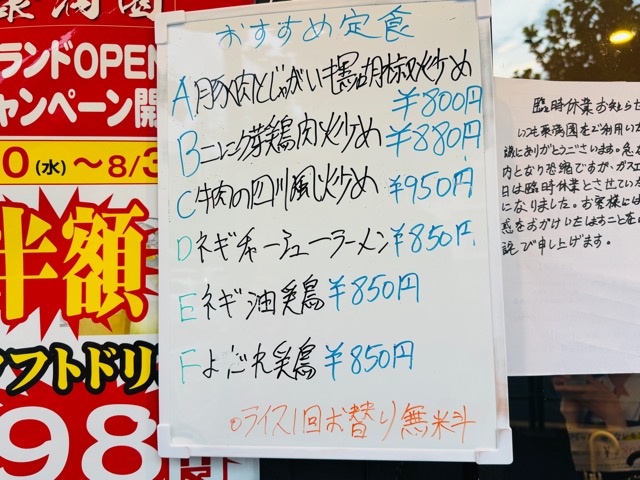 ランドOPEN
キャンペーン開
0(水)～8/3
半額
ソフトドリ
98
おすすめ定食
A豚肉とじゃがいも黒胡椒炒め
¥800円
Bニンニク芽鶏肉炒め ¥880円
C牛肉の四川風炒め ¥950円
DネギチャーシューラーメンIn ¥850円
Eネギ油鶏 ¥850円
Fよごれ鶏 ¥850円
○ライス1回お替り無料
臨時休業お知らせ
いつも東満園をご利用いた
誠にありがとうございます。急な
内となり恐縮ですが、ガスエ
日は臨時休業とさせていた
になりました。お客様には
惑をおかけいたしますことを
詫び申し上げます。